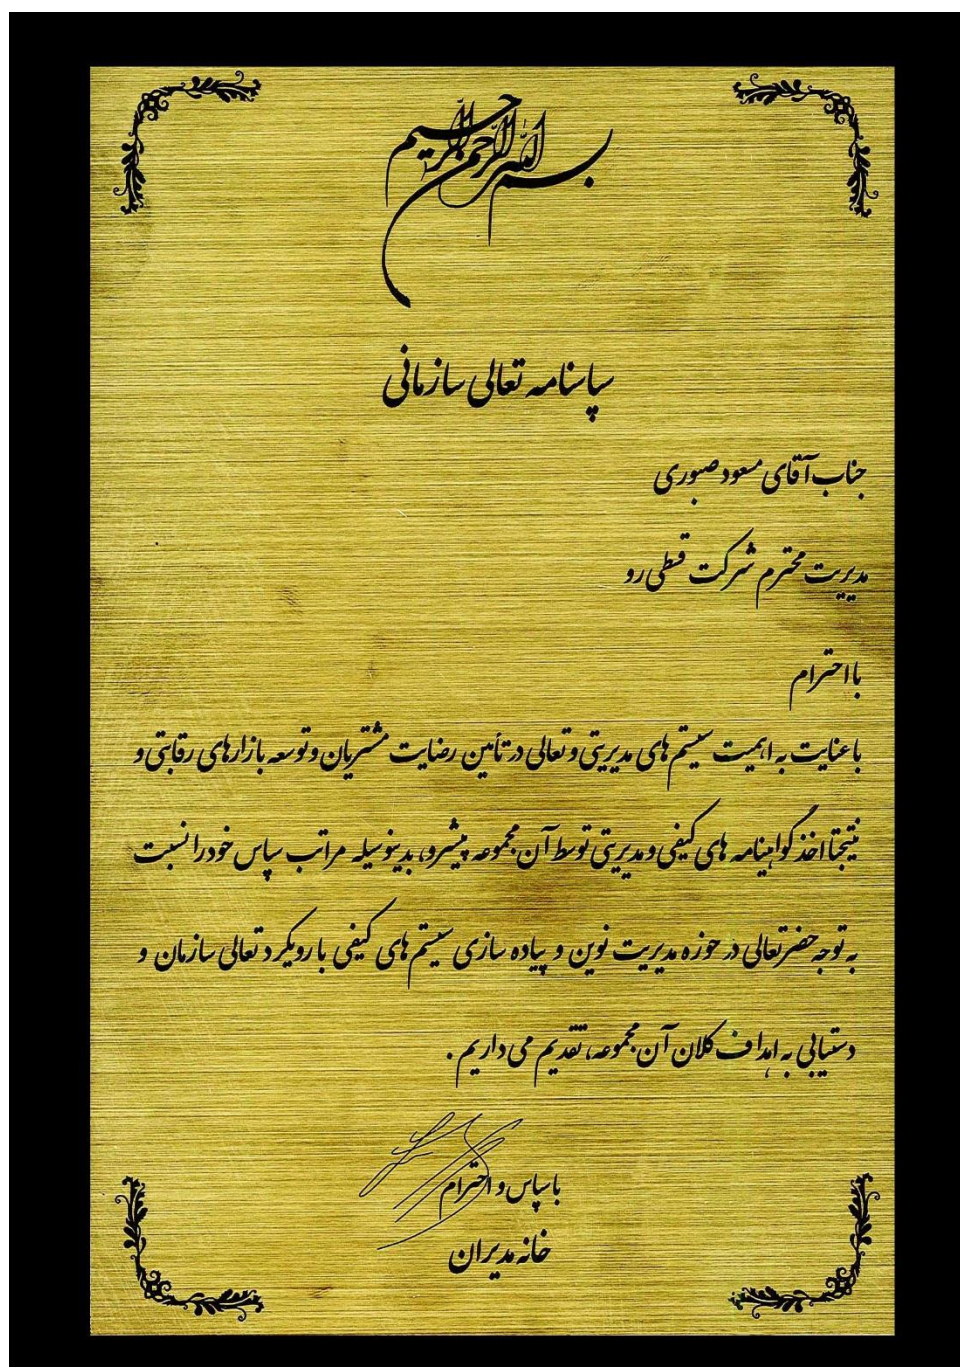 بسم الله الرحمن الرحیم
سپاسنامه تعالی سازمانی
جناب آقای مسعود صبوری
مدیریت محترم شرکت قسطی رو
با احترام
با عنایت به اهمیت سیستم های مدیریتی و تعالی در تأمین رضایت مشتریان و توسعه بازارهای رقابتی و
نتیجتا اخذ گواهینامه های کیفی و مدیریتی توسط آن مجموعه پیشرو، بدینوسیله مراتب سپاس خود را نسبت
به توجه حضرتعالی در حوزه مدیریت نوین و پیاده سازی سیستم های کیفی با رویکرد تعالی سازمان و
دستیابی به اهداف کلان آن مجموعه، تقدیم می داریم .
با سپاس و احترام
خانه مدیران